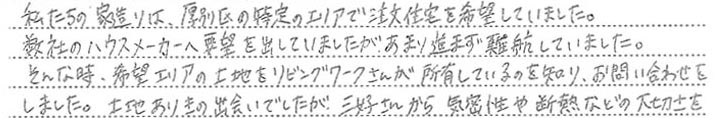 私たちの家造りは、厚別区の特定のエリアで注文住宅を希望していました。
数社のハウスメーカーへ要望を出していましたがあまり進まず難航していました。
そんな時、希望エリアの土地をリビングワークさんが所有しているのを知り、お問い合わせを
しました。土地ありきの出会いでしたが三好さんから気密性や断熱などの大切さを